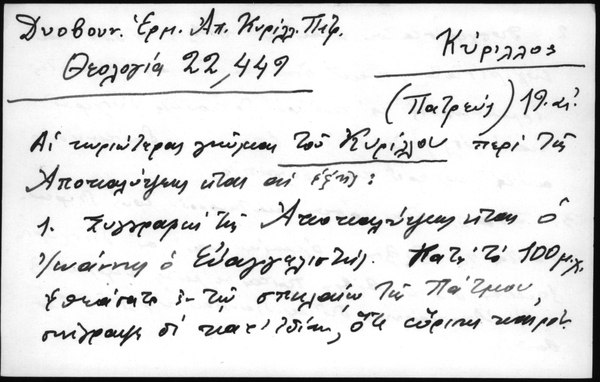 Δυοβουν. Ἑρμ. Ἀπ. Κυρίλλ. Πατρ.
Θεολογία 22,449
Κύριλλος
(Πατρεύς) 19. αἰ.
Αἱ κυριώτεραι γνῶμαι τοῦ Κυρίλλου περὶ τῆς
Ἀποκαλύψεως εἶναι αἱ ἑξῆς:
1. Συγγραφεὺς τῆς Ἀποκαλύψεως εἶναι ὁ
Ἰωάννης ὁ Εὐαγγελιστής. Κατὰ τὸ 100 μ.χ.
ἐθεάσατο ἐν τῷ σπηλαίῳ τῆς Πάτμου,
συνέγραψε δὲ ὅτε εὗρινε καιρόν.